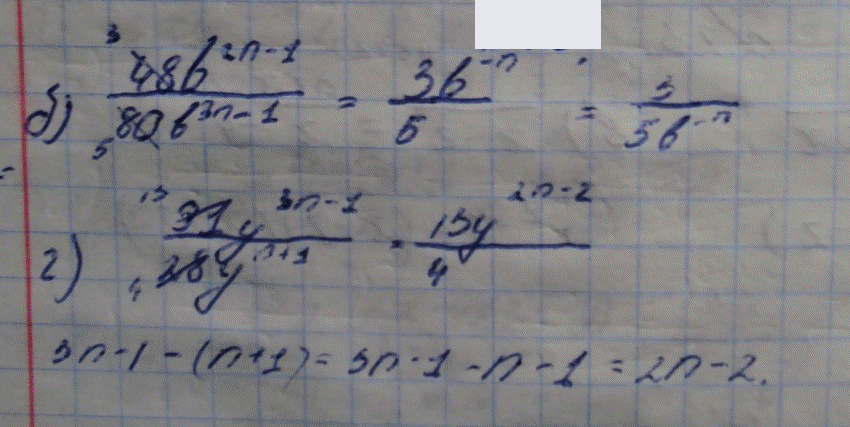 б) 3 48b^{2n-1} / 5 80b^{3n-1} = 3b^{-n} / 5 = 3 / 5b^{-n}
г) 13 91y^{3n-1} / 4 28y^{n+1} = 13y^{2n-2} / 4
3n-1-(n+1)=3n-1-n-1=2n-2.